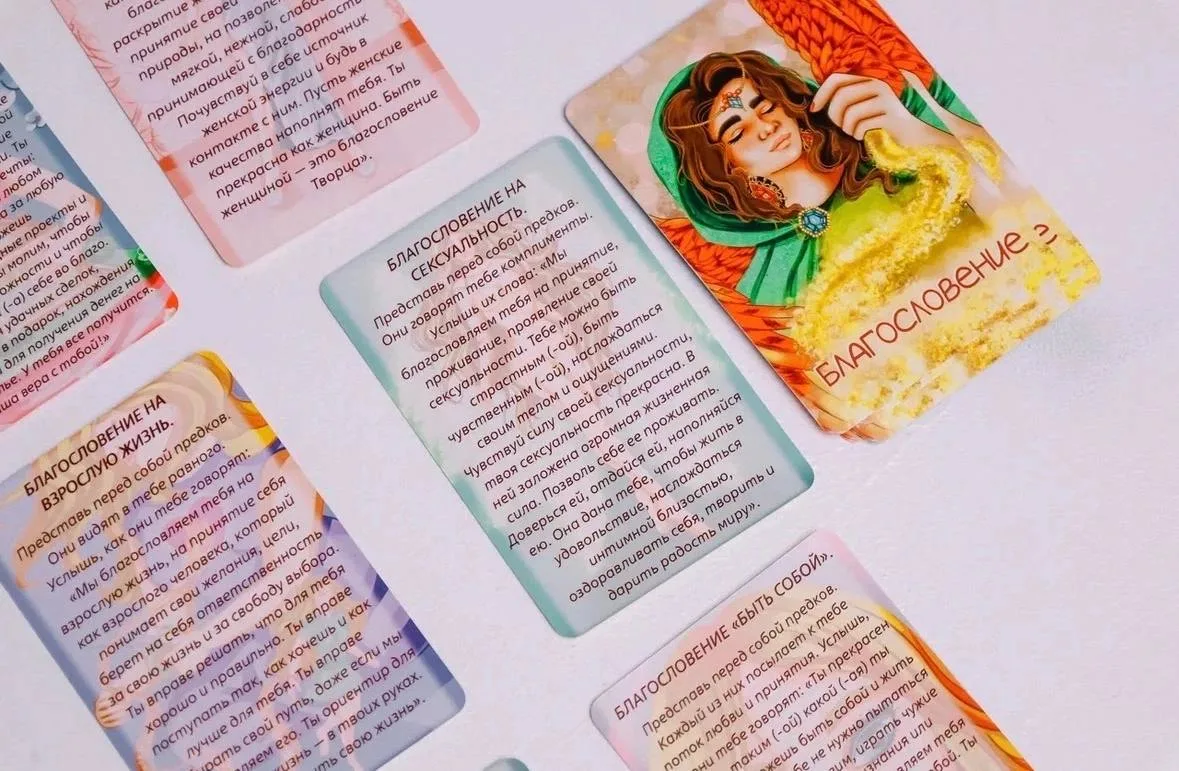 благо
раскрытие
принятие свое
природы, на позволе
мягкой, нежной, слабо
принимающей с благодарностью
Почувствуй в себе источник
женской энергии и будь в
контакте с ним. Пусть женские
качества наполнят тебя. Ты
прекрасна как женщина. Быть
женщиной — это благословение
Творца».
любом
за любую
ные проекты и
молим, чтобы
ожности и чтобы
(-а) себе во благо.
удачных сделок,
в подарок, нахождения
для получения денег на
У тебя все получится.
вера с тобой!»
БЛАГОСЛОВЕНИЕ НА
СЕКСУАЛЬНОСТЬ.
Представь перед собой предков.
Они говорят тебе комплименты.
Услышь их слова: «Мы
благословляем тебя на принятие,
проживание, проявление своей
сексуальности. Тебе можно быть
страстным (-ой), быть
чувственным (-ой), наслаждаться
своим телом и ощущениями.
Чувствуй силу своей сексуальности,
твоя сексуальность прекрасна. В
ней заложена огромная жизненная
сила. Позволь себе ее проживать.
Доверься ей, отдайся ей, наполняйся
ею. Она дана тебе, чтобы жить в
удовольствие, наслаждаться
интимной близостью,
оздоравливать себя, творить и
дарить радость миру».
БЛАГОСЛОВЕНИЕ
БЛАГОСЛОВЕНИЕ НА
ВЗРОСЛУЮ ЖИЗНЬ.
Представь перед собой предков.
Они видят в тебе равного.
Услышь, как они тебе говорят:
«Мы благословляем тебя на
взрослую жизнь, на принятие себя
как взрослого человека, который
понимает свои желания, цели,
берет на себя ответственность
за свою жизнь и за свободу выбора.
Ты вправе решать, что для тебя
хорошо и правильно. Ты вправе
поступать так, как хочешь и как
лучше для тебя. Ты вправе
бирать свой путь, даже если мы
его. Ты ориентир для
— в твоих руках.
свою жизнь».
БЛАГОСЛОВЕНИЕ «БЫТЬ СОБОЙ».
Представь перед собой предков.
Каждый из них посылает к тебе
поток любви и принятия. Услышь,
они тебе говорят: «Ты прекрасен
таким (-ой) какой (-ая) ты
можешь быть собой и жить
бе не нужно пытаться
играть чужие
знания или
вляем тебя
Ты